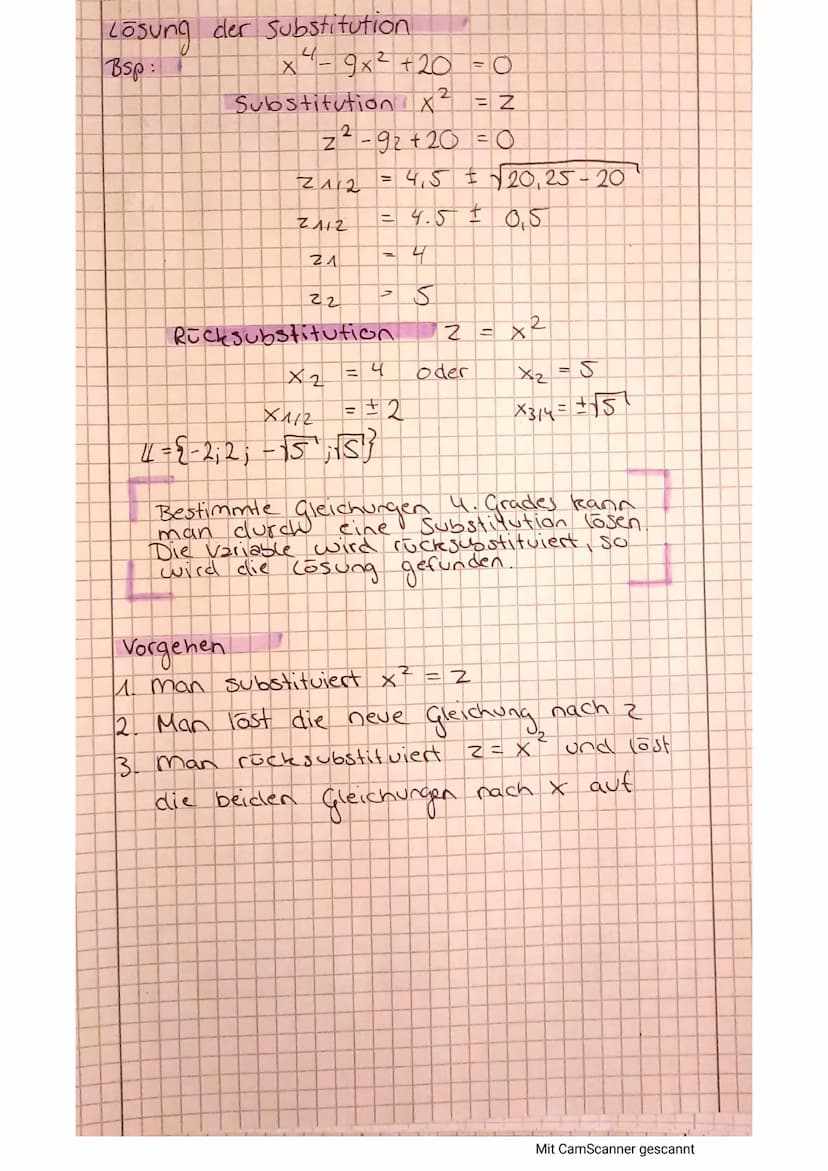 Lösung der Substitution
Bsp: x⁴ - 9x² + 20 = 0
Substitution x² = z
z² - 9z + 20 = 0
z1/2 = 4,5 ± √20,25 - 20
z1/2 = 4.5 ± 0,5
z1 = 4
z2 = 5
Rücksubstitution z = x²
x2 = 4 oder x2 = 5
x1/2 = ± 2 x3/4 = ±√5
𝕃 = {-2; 2; -√5; √5}
Bestimmte Gleichungen 4. Grades kann
man durch eine Substitution lösen.
Die Variable wird rücksubstituiert, so
wird die Lösung gefunden.
Vorgehen
1. Man substituiert x² = z
2. Man löst die neue Gleichung nach z
3. Man rücksubstituiert z = x² und löst
die beiden Gleichungen nach x auf
Mit CamScanner gescannt